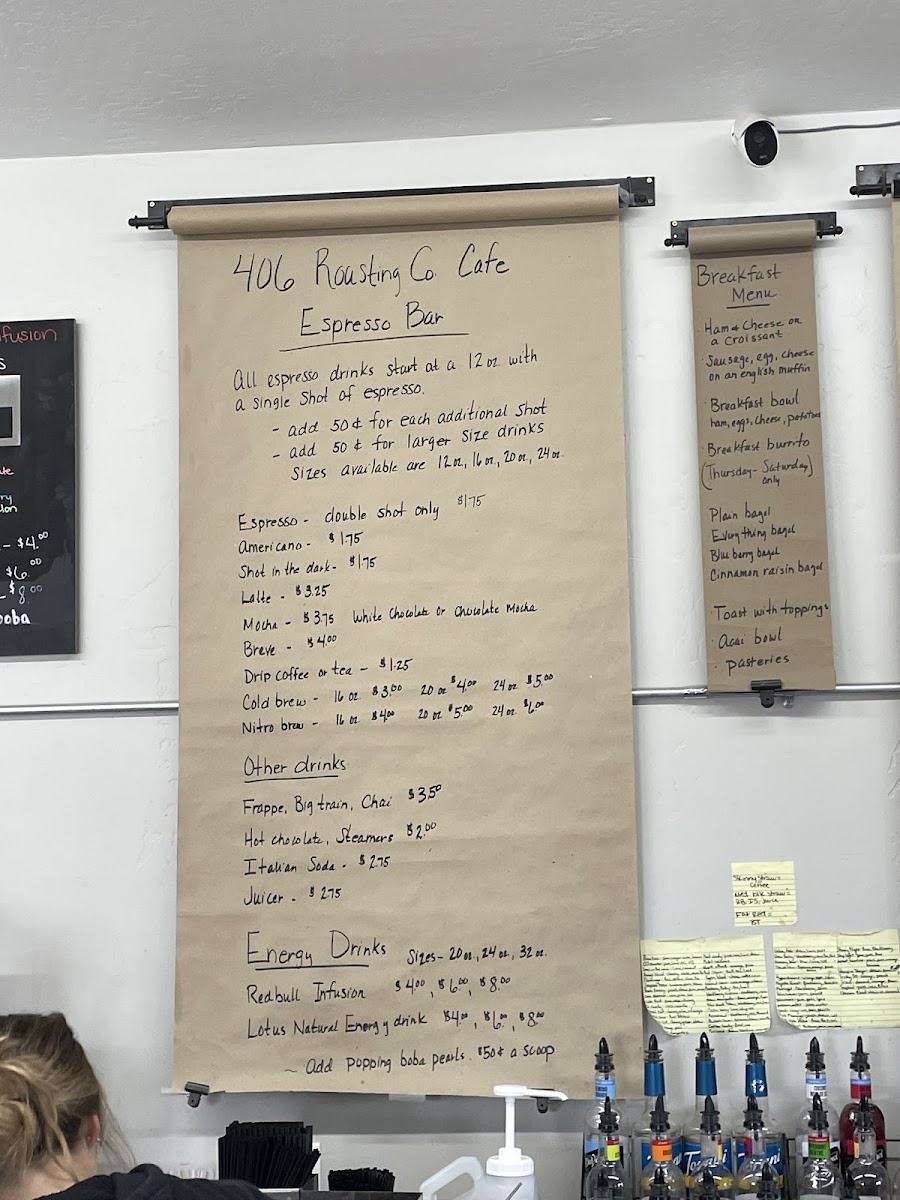 406 Roasting Co. Cafe
Espresso Bar
All espresso drinks start at a 12 oz with
a single shot of espresso.
- add 50¢ for each additional shot
- add 50¢ for larger size drinks
Sizes available are 12oz, 16oz, 20oz, 24oz.
Espresso - double shot only $1.75
Americano - $1.75
Shot in the dark - $1.75
Latte - $3.25
Mocha - $3.75 White Chocolate or Chocolate Mocha
Breve - $4.00
Drip coffee or tea - $1.25
Cold brew - 16 oz. $3.00 20 oz $4.00 24 oz. $5.00
Nitro brew - 16 oz. $4.00 20 oz $5.00 24 oz. $6.00
Other drinks
Frappe, Big train, Chai $3.50
Hot chocolate, Steamers $2.00
Italian Soda - $2.75
Juicer - $2.75
Energy Drinks Sizes - 20 oz., 24 oz, 32 oz.
Redbull Infusion $4.00, $6.00, $8.00
Lotus Natural Energy drink $4.00, $6.00, $8.00
~ Add popping boba pearls. $50¢ a scoop
Breakfast
Menu
· Ham & Cheese on
a croissant
· Sausage, egg, cheese
on an english muffin
· Breakfast bowl
ham, eggs, cheese, potatoes
· Breakfast burrito
(Thursday - Saturday)
only
· Plain bagel
Everything bagel
Blueberry bagel
Cinnamon raisin bagel
· Toast with toppings
· Acai bowl
· pasteries
fusion
- $4.00
$6.00
$8.00
boba
Skinny straw =
coffee
Torani